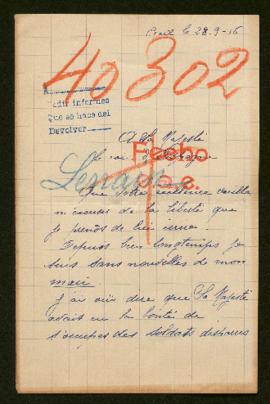 Creil le 28.9-16
40302
Pedir informes
Que se haga del
Devolver
A Sa Majesté
Le roi d'Espagne
Fecho
Que votre excellence veuille
m'excuser de la liberté que
je prends de lui
Depuis bien longtemps je
suis sans nouvelles de mon
mari
J'ai ouïe dire que Sa Majesté
avait eu la bonté de
s'occuper des soldats disparus